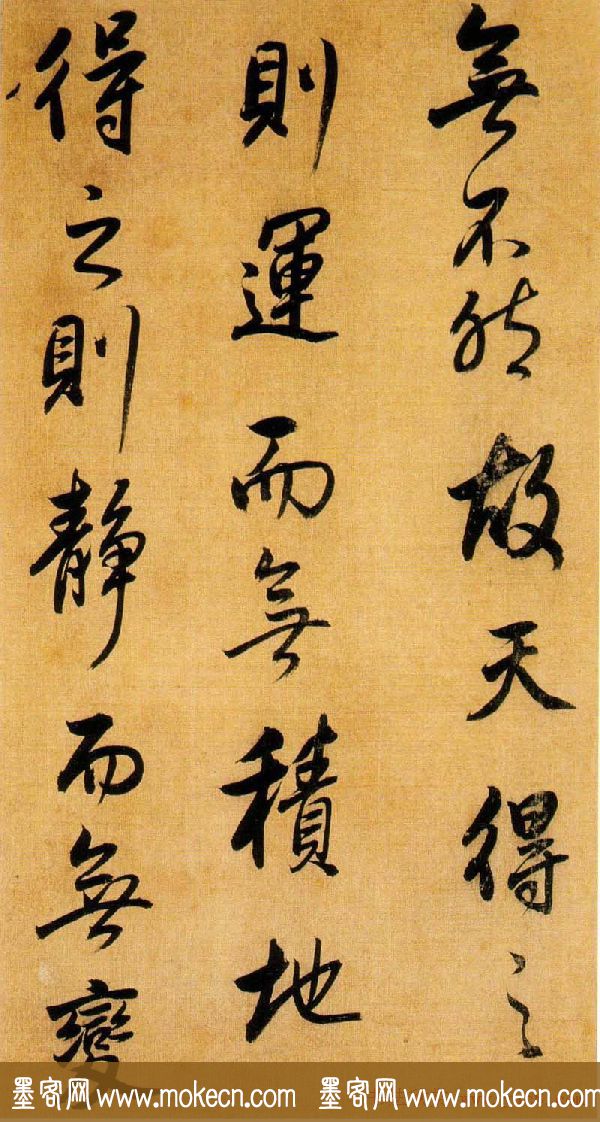 無不然故天得之
則運而無積地
得之則靜而無變
墨客网 www.mokecn.com 墨客网 www.mokecn.com